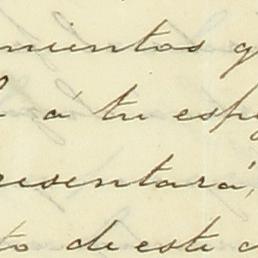 mientos g
á tu esp
resentará,
to de este